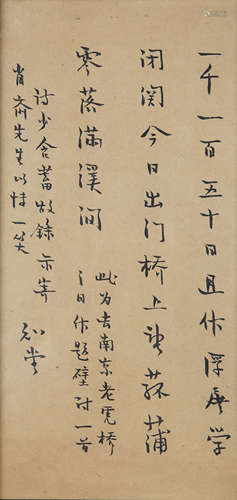 一千一百五十日且作浮屠学
闭関今日出门桥上望菰蒲
零落满溪间
此为去南京老虎桥
之日作题壁诗一首
诗少含蓄故録示寄
肖斋先生以博一笑
知堂